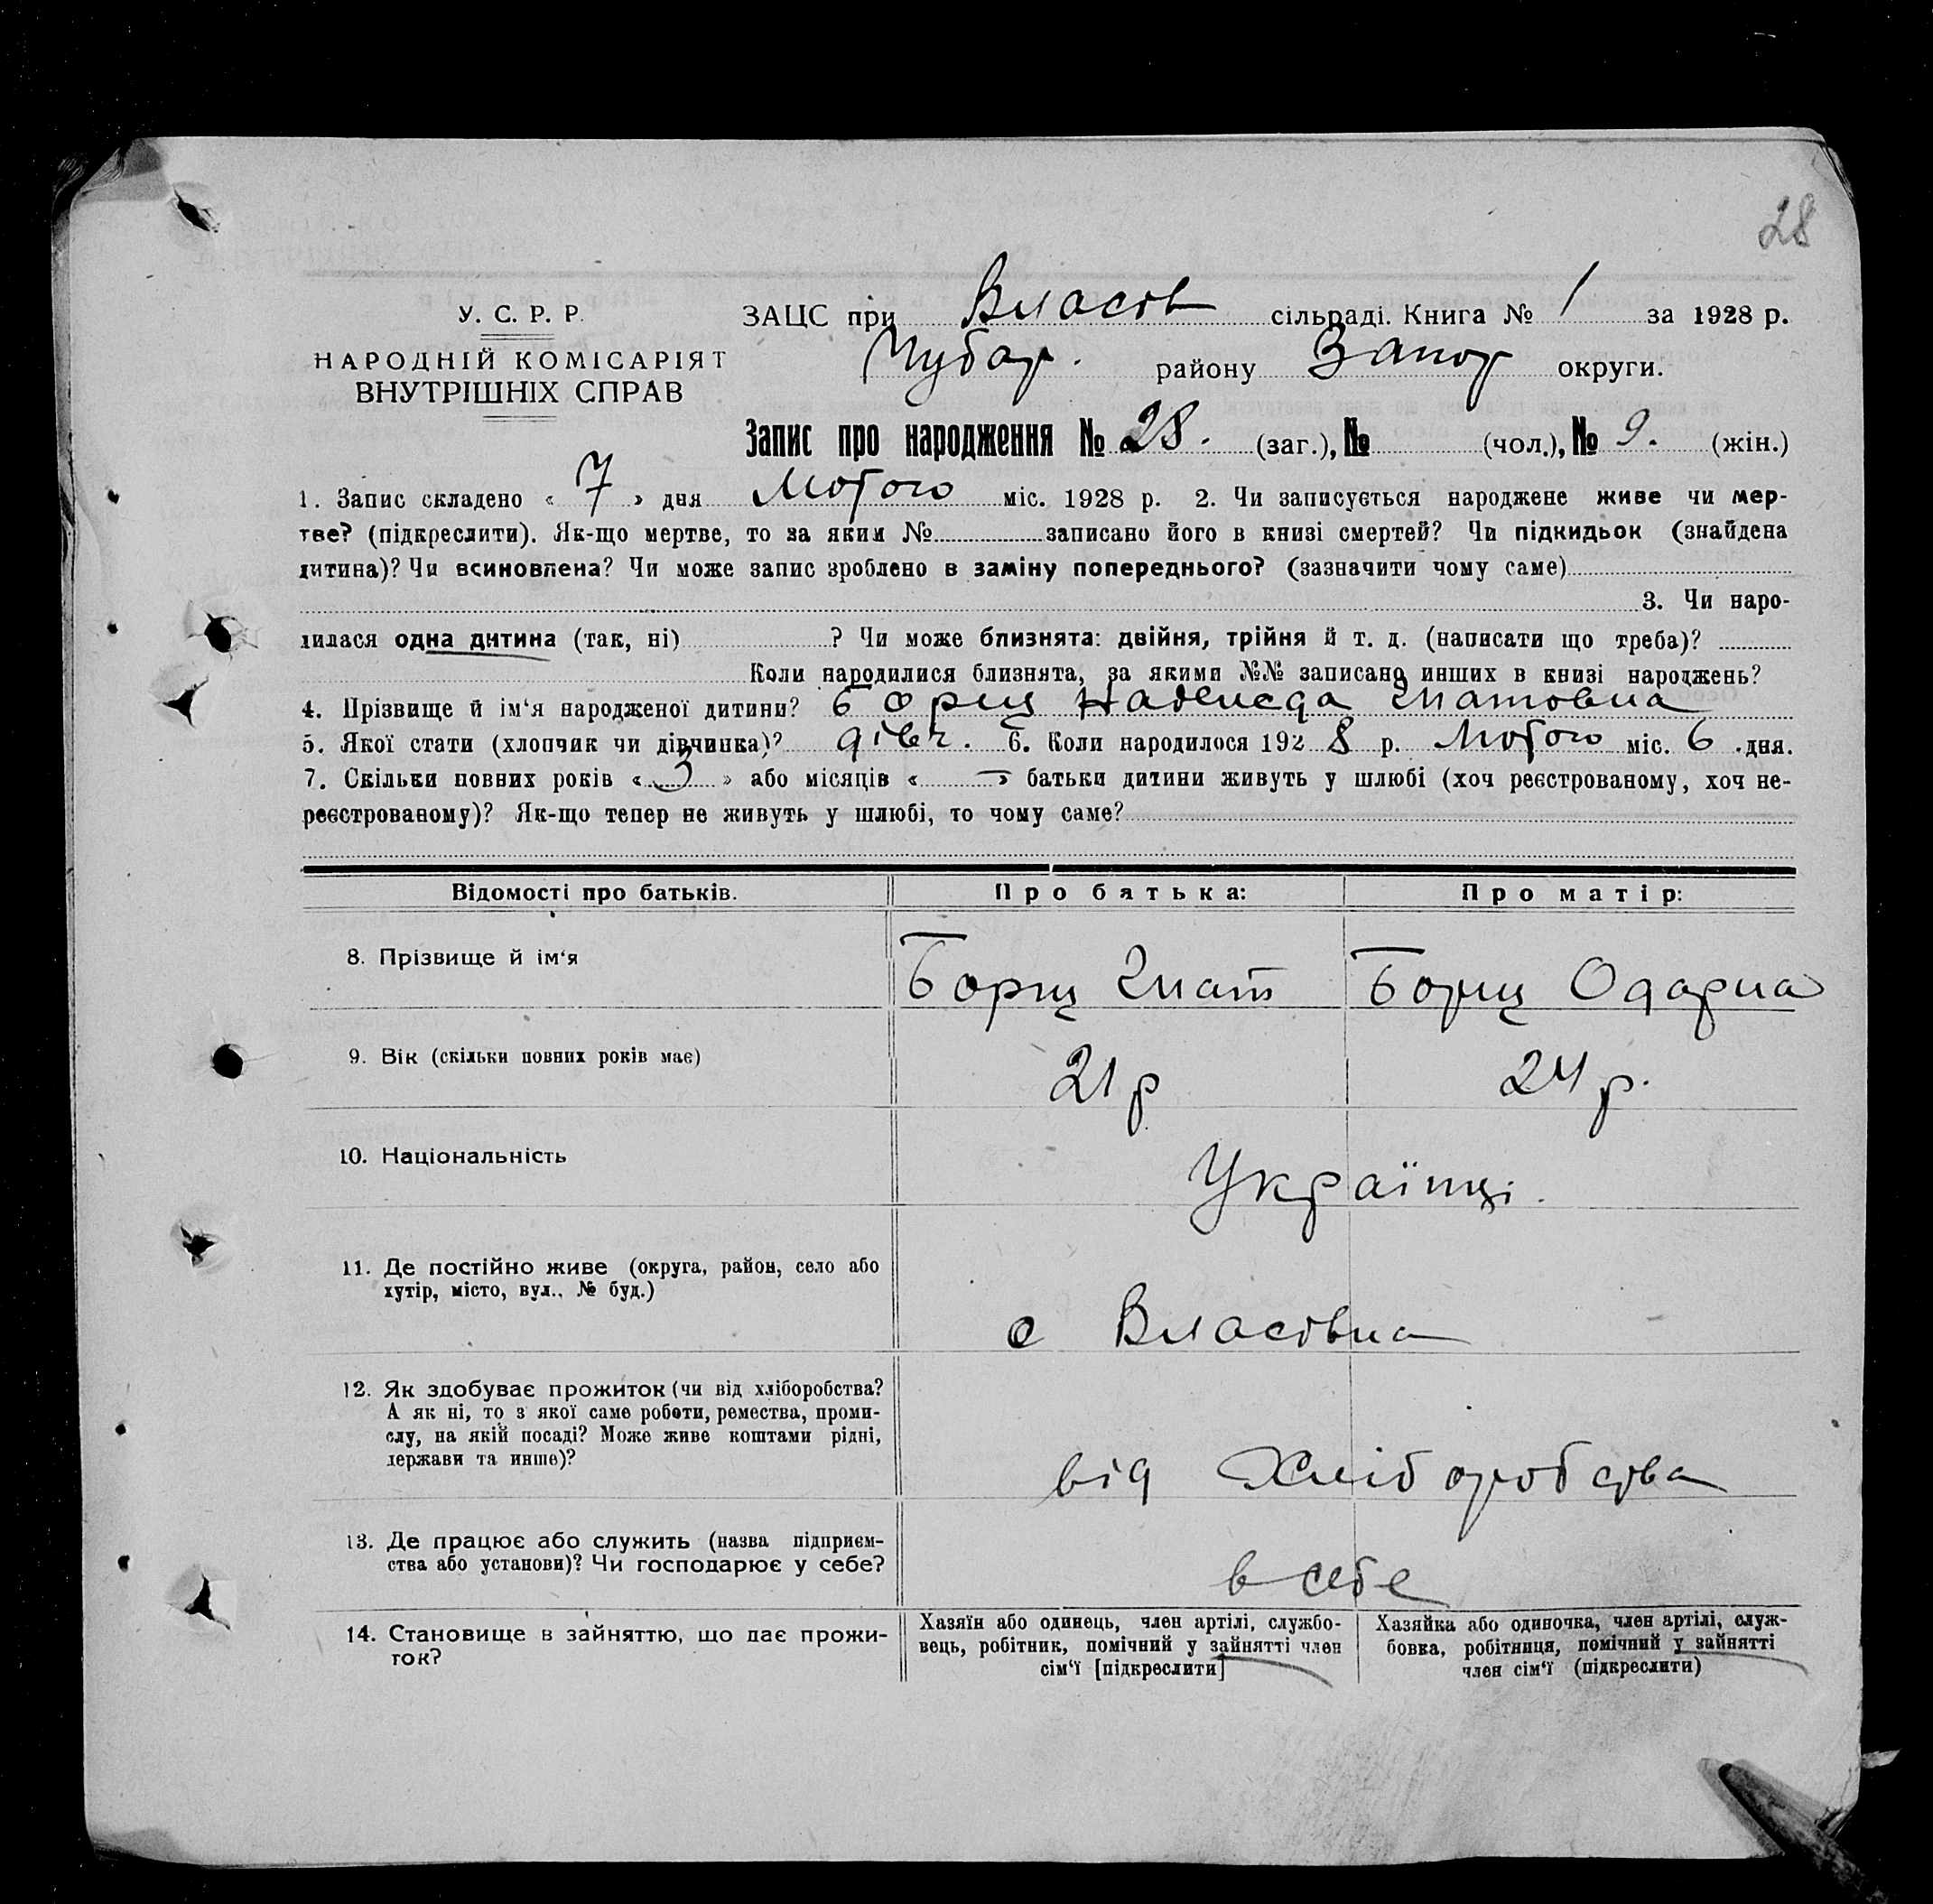 28
У. С. Р. Р.
НАРОДНІЙ КОМІСАРІЯТ
ВНУТРІШНІХ СПРАВ
ЗАЦС при Власів сільраді. Книга № 1 за 1928 р.
Чубар. району Запор округи.
Запис про народження № 28. (заг.), № (чол.), № 9. (жін.)
1. Запис складено « 7 » дня Лютого міс. 1928 р. 2. Чи записується народжене живе чи мер-
тве? (підкреслити). Як-що мертве, то за яким № записано його в книзі смертей? Чи підкидьок (знайдена
дитина)? Чи всиновлена? Чи може запис зроблено в заміну попереднього? (зазначити чому саме)
3. Чи наро-
дилася одна дитина (так, ні) ? Чи може близнята: двійня, трійня й т. д. (написати що треба)?
Коли народилися близнята, за якими №№ записано инших в книзі народжень?
4. Прізвище й ім‘я народженої дитини? Борщ Надежда Гнатовна
5. Якої стати (хлопчик чи дівчинка)? дівч. 6. Коли народилося 1928 р. Лютого міс. 6 дня.
7. Скільки повних років « 3 » або місяців « — » батьки дитини живуть у шлюбі (хоч реєстрованому, хоч не-
реєстрованому)? Як-що тепер не живуть у шлюбі, то чому саме?
Відомості про батьків. Про батька: Про матір:
8. Прізвище й ім‘я Борщ Гнат Борщ Одарка
9. Вік (скільки повних років має) 21 р 24 р.
10. Національність Українці.
11. Де постійно живе (округа, район, село або
хутір, місто, вул., № буд.)
с Власівка
12. Як здобуває прожиток (чи від хліборобства?
А як ні, то з якої саме роботи, ремества, проми-
слу, на якій посаді? Може живе коштами рідні,
держави та инше)?
від Хліборобства
13. Де працює або служить (назва підприєм-
ства або установи)? Чи господарює у себе?
в себе
14. Становище в зайняттю, що дає прожи-
ток?
Хазяїн або одинець, член артілі, службо-
вець, робітник, помічний у зайнятті член
сім‘ї [підкреслити]
Хазяйка або одиночка, член артілі, служ-
бовка, робітниця, помічний у зайнятті
член сім‘ї (підкреслити)